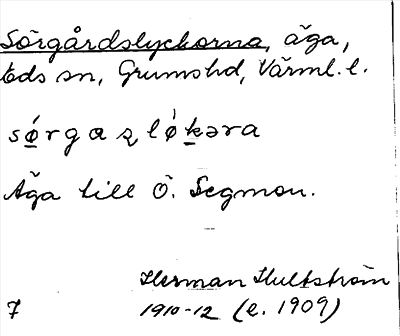 Sörgårdslyckorna, äga,
Eds sn, Grums hd, Värml. l.
sǿrgaʂlǿkəra
Äga till Ö. Segmon.
Herman Hultström
7 1910-12 (e. 1909)